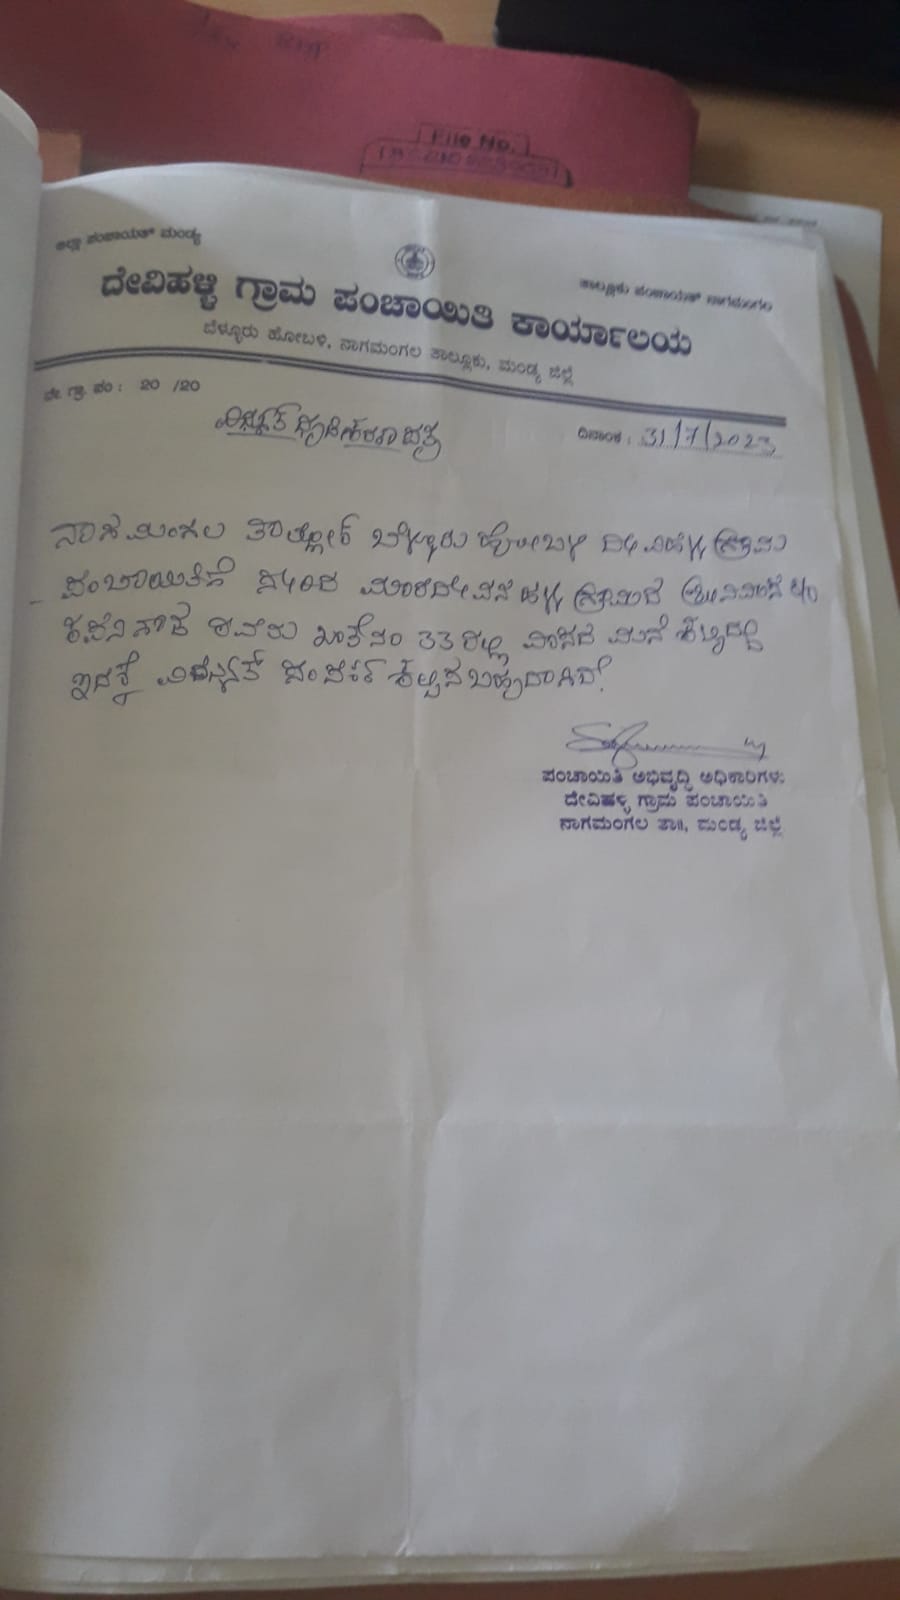 File No.
ಜಿಲ್ಲಾ ಪಂಚಾಯತ್ ಮಂಡ್ಯ
ತಾಲ್ಲೂಕು ಪಂಚಾಯತ್ ನಾಗಮಂಗಲ
ದೇವಿಹಳ್ಳಿ ಗ್ರಾಮ ಪಂಚಾಯಿತಿ ಕಾರ್ಯಾಲಯ
ಬೆಳ್ಳೂರು ಹೋಬಳಿ, ನಾಗಮಂಗಲ ತಾಲ್ಲೂಕು, ಮಂಡ್ಯ ಜಿಲ್ಲೆ
ದೇ. ಗ್ರಾ. ಪಂ : 20 /20
ದಿನಾಂಕ : 31/7/2023
ನಾಗಮಂಗಲ ತಾಲ್ಲೋಕ್ ಬೆಳ್ಳೂರು ಹೋಬಳಿ ದೇವಿಹಳ್ಳಿ ಗ್ರಾಮ
ಪಂಚಾಯಿತಿಗೆ ಸೇರಿದ ಗ್ರಾಮದ
ರವರು ಖಾತೆ ನಂ 33 ರಲ್ಲಿ ವಾಸದ ಮನೆ
ಇದಕ್ಕೆ ವಿದ್ಯುತ್ ಸಂಪರ್ಕ ಕಲ್ಪಿಸಬಹುದಾಗಿದೆ.
ಪಂಚಾಯಿತಿ ಅಭಿವೃದ್ಧಿ ಅಧಿಕಾರಿಗಳು
ದೇವಿಹಳ್ಳಿ ಗ್ರಾಮ ಪಂಚಾಯಿತಿ
ನಾಗಮಂಗಲ ತಾ॥, ಮಂಡ್ಯ ಜಿಲ್ಲೆ